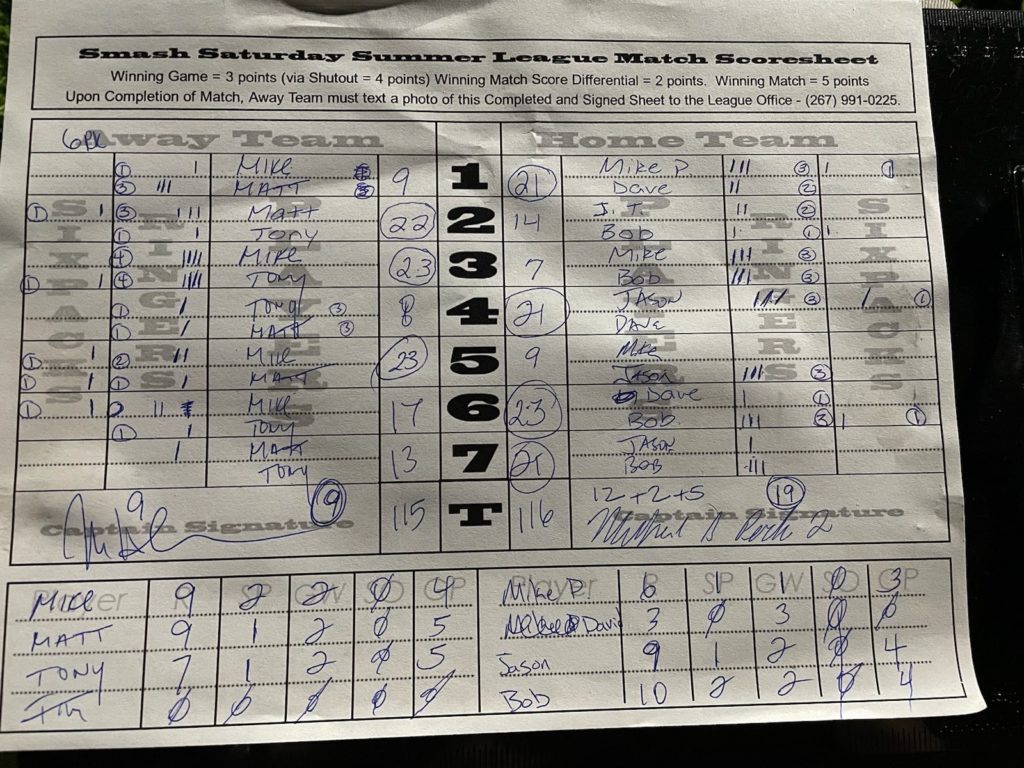 Smash Saturday Summer League Match Scoresheet
Winning Game = 3 points (via Shutout = 4 points) Winning Match Score Differential = 2 points. Winning Match = 5 points
Upon Completion of Match, Away Team must text a photo of this Completed and Signed Sheet to the League Office - (267) 991-0225.
Away Team Home Team
SIXPACKS RINGERS PLAYERS PLAYERS RINGERS SIXPACKS
1 I MIKE 9 1 21 Mike P. III 3 I 1
3 III MATT 3 Dave II 2
1 I 3 III Matt 22 2 14 J.T. II 2
1 I Tony Bob I 1 I
4 IIII MIKE 23 3 7 Mike III 3
1 I 4 IIII TONY Bob III 3
1 I TONY 3 8 4 21 JASON III 3 I 1
1 I MATT 3 DAVE
1 I 2 II MIKE 23 5 9 MIKE
1 I 1 I MATT JASON III 3
1 I 2 II MIKE 17 6 23 Dave I 1
1 I TONY Bob III 3 I 1
I MATT 13 7 21 JASON I
TONY BOB III
9 9 115 T 116 12+2+5 19
Captain Signature Captain Signature
Player R SP GW SO GP Player R SP GW SO GP
MIKE 9 2 2 0 4 Mike P. 6 1 1 0 3
MATT 9 1 2 0 5 David 3 0 3 0 0
TONY 7 1 2 0 5 Jason 9 1 2 0 4
0 0 0 0 0 Bob 10 2 2 0 4